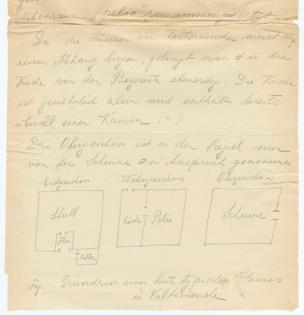 Nebenraum "pelio" zusammengesetzt.
Da die Häuser von Valtornenche meist auf
einem Abhang liegen, gelangt man in die
Küche von der Bergseite ebenerdig. Die Küche
ist gewöhnlich klein und enthält bereits
überall einen Kamin (-)
Das Obergeschoss ist in der Regel nur
von der Scheune in Anspruch genommen
Erdgeschoss Wohngeschoss Obergeschoss
Stall Küche Pelio Scheune
Keller
Fig. Grundriss eines heute typischen Hauses
in Valtornenche